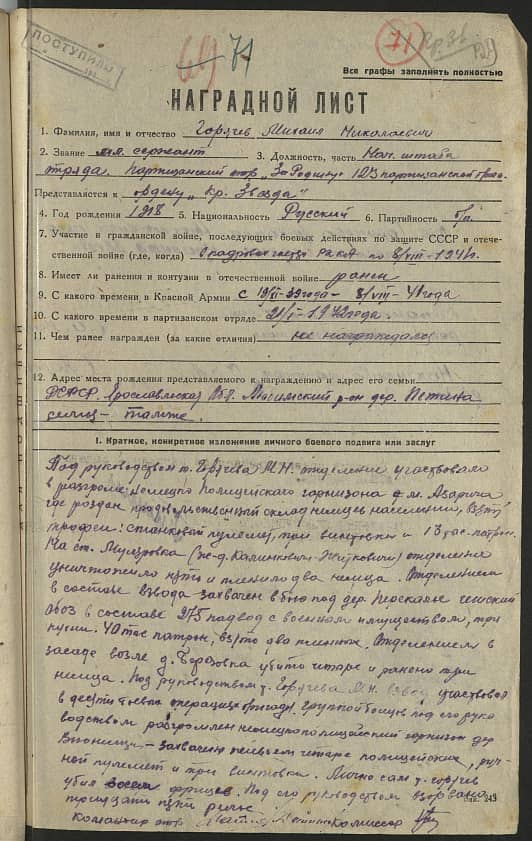 ПОСТУПИЛО
69 71
71
Все графы заполнять полностью
НАГРАДНОЙ ЛИСТ
1. Фамилия, имя и отчество Горячев Михаил Николаевич
2. Звание мл. сержант 3. Должность, часть Нач. штаба
отряда партизанский отр. "За Родину" 123 партизанской
Представляется к ордену "Кр. Звезда"
4. Год рождения 1918 5. Национальность Русский 6. Партийность б/п
7. Участие в гражданской войне, последующих боевых действиях по защите СССР и отече-
ственной войне (где, когда) РККА по 8/VIII-1941г.
8. Имеет ли ранения и контузии в отечественной войне ранен
9. С какого времени в Красной Армии с 39 года - 8/VIII-41 года
10. С какого времени в партизанском отряде 21/I-1942 года.
11. Чем ранее награжден (за какие отличия) не награждался
12. Адрес места рождения представляемого к награждению и адрес его семьи
РСФСР Ярославская обл. р-он дер.
также.
I. Краткое, конкретное изложение личного боевого подвига или заслуг
Под руководством т. Горячева М.Н. отделение участвовало
в разгроме немецко полицейского гарнизона в м. Азаричи
где роздан продовольственный склад немцев населению, взяты
трофеи: станковый пулемет, три винтовки и 13 тыс. патрон.
На ст. Муляровка (ж-д. Калинковичи-Житковичи) отделение
уничтожило и пленило два немца. Отделением
в составе взвода захвачен в бою под дер. чешский
обоз в составе 275 подвод с военным имуществом, три
пушки. 40 тыс патрон, взято два пленных. Отделением в
засаде возле д. Березовка убито четыре и ранено три
немца. Под руководством т. Горячева М.Н. взвод участвовал
в десяти боевых операциях бригады. Группой бойцов под его руко
водством разгромлен немецкополицейский гарнизон дер
- захвачено пленных четыре полицейских, руч-
ной пулемет и три винтовки. Лично сам т. Горячев
убил восемь фрицев. Под его руководством взорвано
тридцать штук рельс.
Командир отр. Комиссар